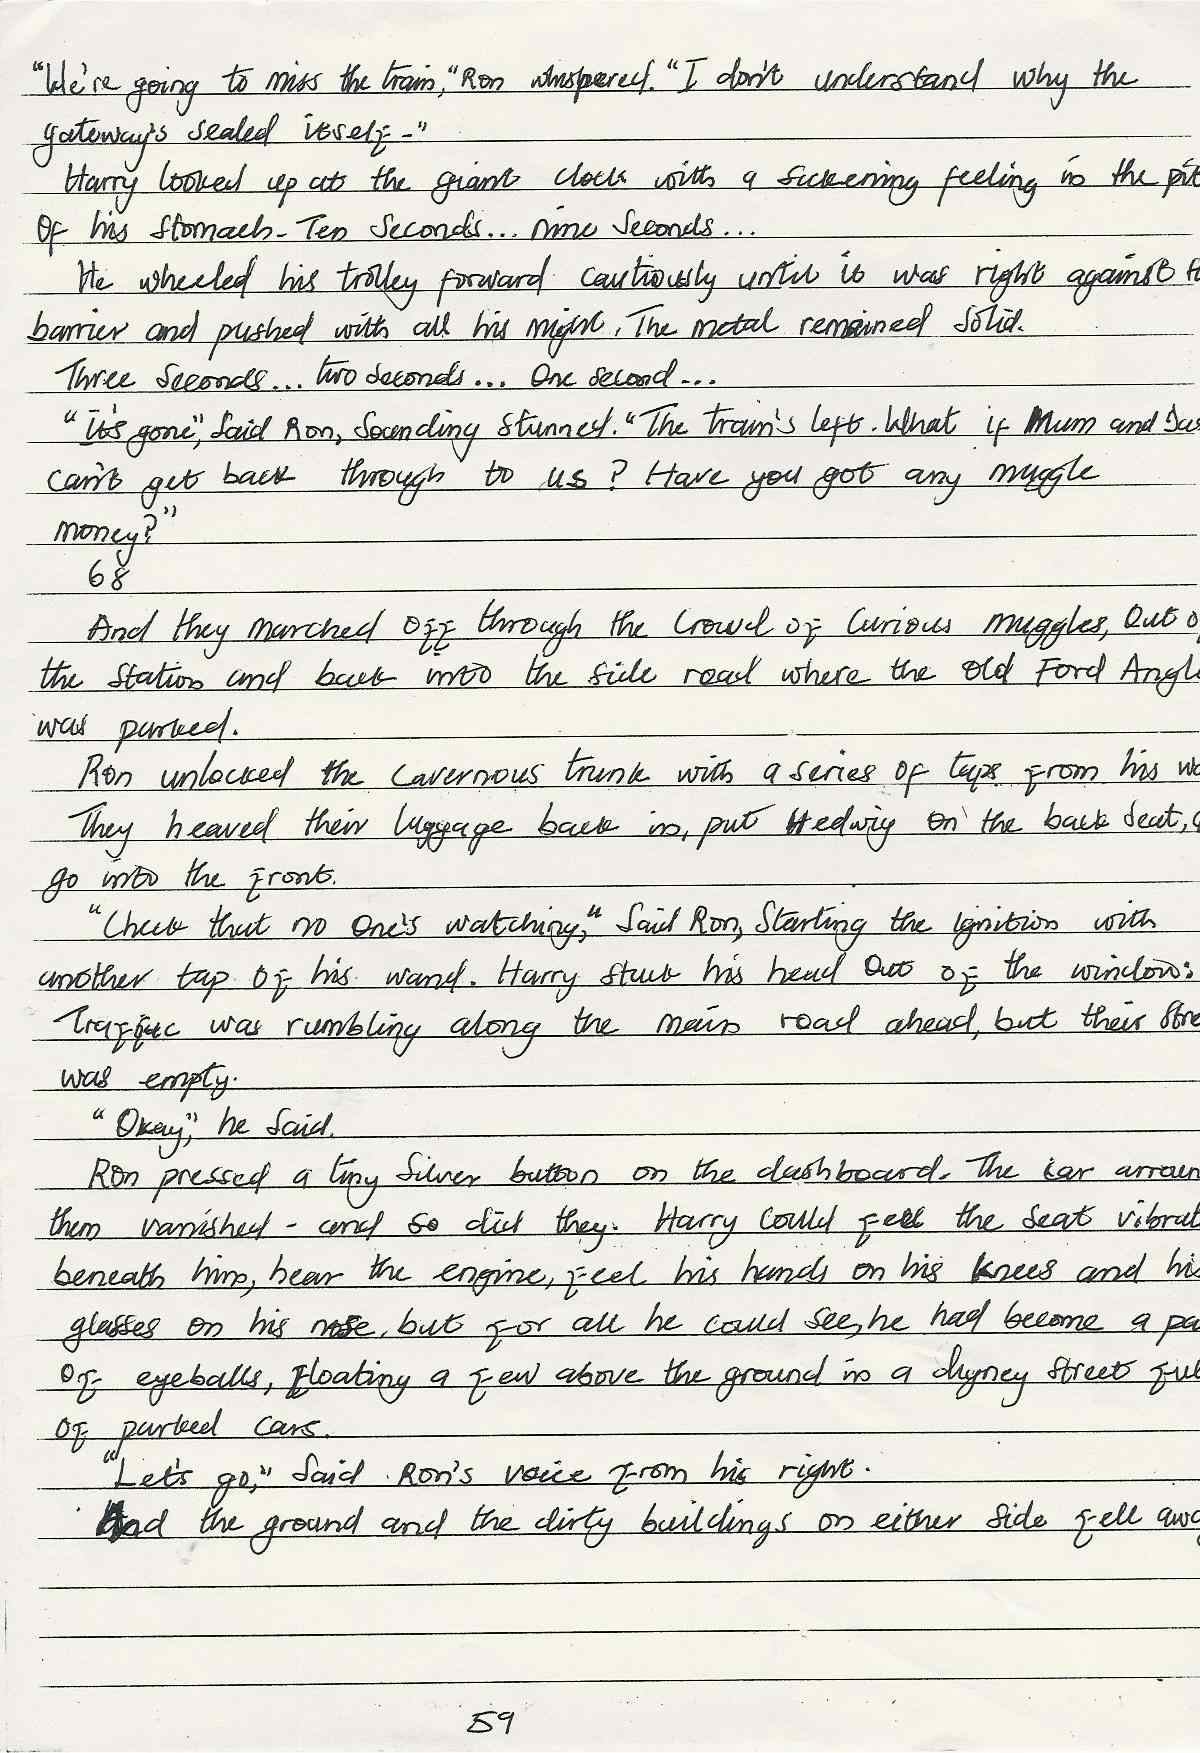 "We're going to miss the train," Ron whispered. "I don't understand why the
gateway's sealed itself-"
Harry looked up at the giant clock with a sickening feeling in the pit
Of his stomach- Ten Seconds... nine Seconds...
He wheeled his trolley forward cautiously until it was right against
barrier and pushed with all his might. The metal remained Solid.
Three Seconds... two seconds... One second...
"it's gone", Said Ron, Sounding Stunned. "The train's left. What if Mum and
can't get back through to us? Have you got any muggle
money?"
68
And they marched off through the Crowd of Curious muggles, Out
the Station and back into the side road where the Old Ford
was parked.
Ron unlocked the cavernous trunk with a series of taps from his
They heaved their luggage back in, put Hedwig on the back Seat,
go into the front.
"Check that no One's watching," Said Ron, Starting the Ignition with
another tap Of his wand. Harry Stuck his head Out of the window:
Traffic was rumbling along the main road ahead, but their
was empty.
"Okay", he Said.
Ron pressed a tiny Silver button on the dashboard. The car
them vanished - and so did they. Harry Could feel the Seat
beneath him, hear the engine, feel his hands on his knees and his
glasses on his nose, but for all he could see, he had become a
Of eyeballs, floating a few above the ground in a Street
of parked cars.
"Let's go," Said Ron's voice from his right.
And the ground and the dirty buildings on either Side fell
59